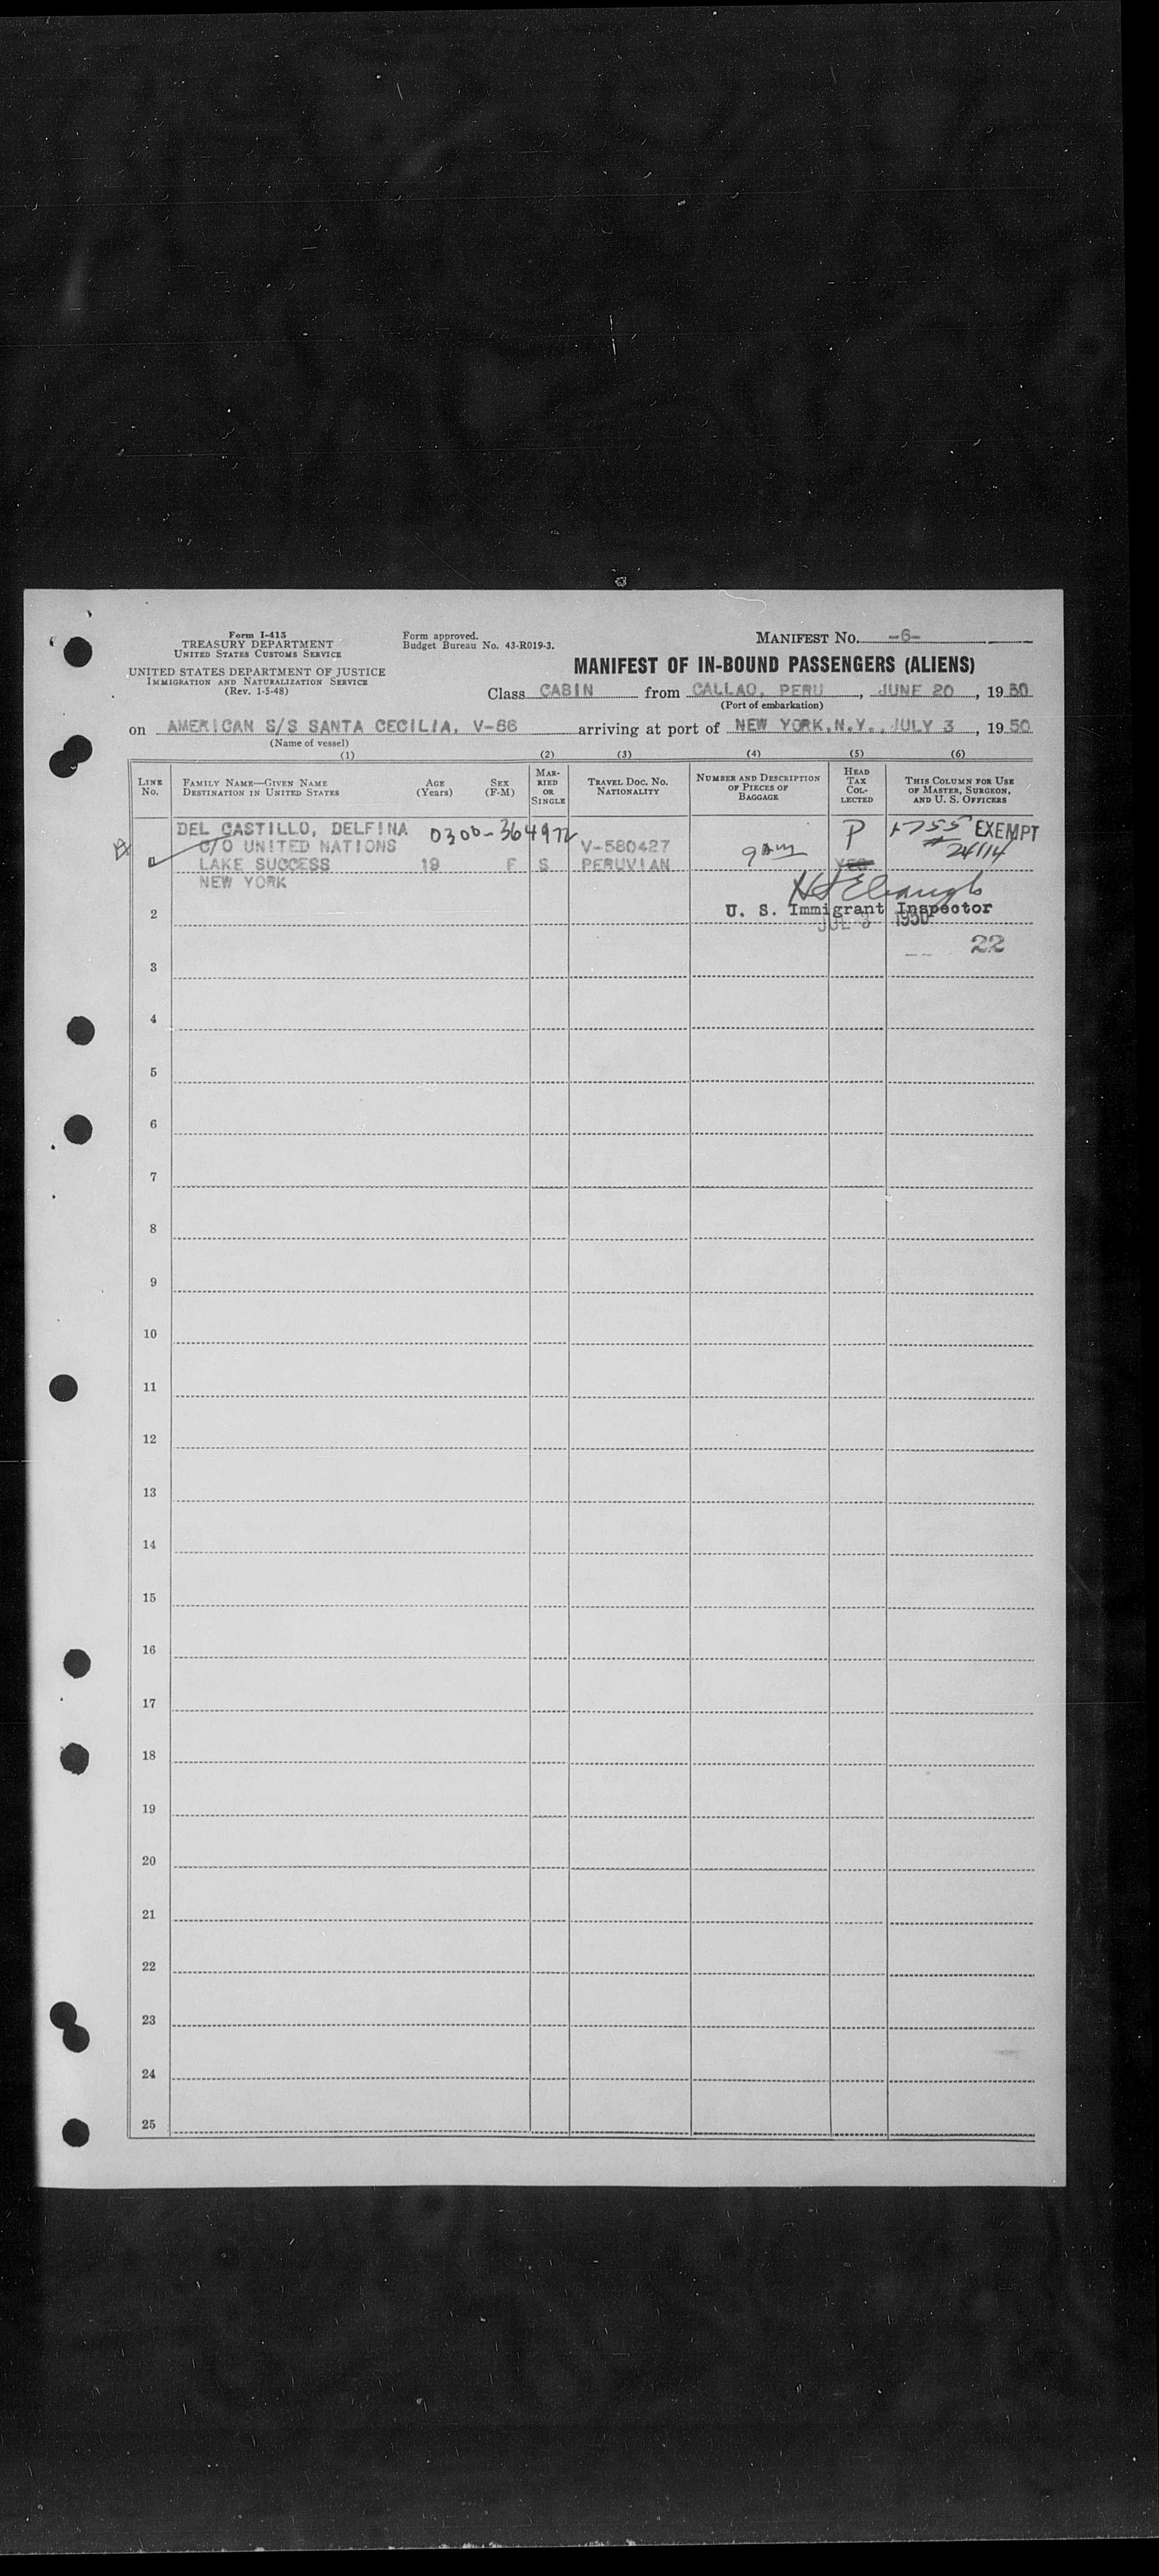 Form I-415
TREASURY DEPARTMENT
UNITED STATES CUSTOMS SERVICE
UNITED STATES DEPARTMENT OF JUSTICE
IMMIGRATION AND NATURALIZATION SERVICE
(Rev. 1-5-48)
Form approved.
Budget Bureau No. 43-R019-3.
MANIFEST No. -6-
MANIFEST OF IN-BOUND PASSENGERS (ALIENS)
Class CABIN from CALLAO, PERU, JUNE 20, 1950
(Port of embarkation)
on AMERICAN S/S SANTA CECILIA, V-66 arriving at port of NEW YORK, N.Y., JULY 3, 1950
(Name of vessel)
(1) (2) (3) (4) (5) (6)
LINE No.
FAMILY NAME—GIVEN NAME
DESTINATION IN UNITED STATES
AGE (Years)
SEX (F-M)
MARRIED OR SINGLE
TRAVEL DOC. NO.
NATIONALITY
NUMBER AND DESCRIPTION OF PIECES OF BAGGAGE
HEAD TAX COLLECTED
THIS COLUMN FOR USE OF MASTER, SURGEON, AND U. S. OFFICERS
DEL CASTILLO, DELFINA 0300-364972 P EXEMPT
C/O UNITED NATIONS V-580427 24114
LAKE SUCCESS 19 F S PERUVIAN YES
NEW YORK
2 U. S. Immigrant Inspector
JUL 3 1950
22
3
4
5
6
7
8
9
10
11
12
13
14
15
16
17
18
19
20
21
22
23
24
25